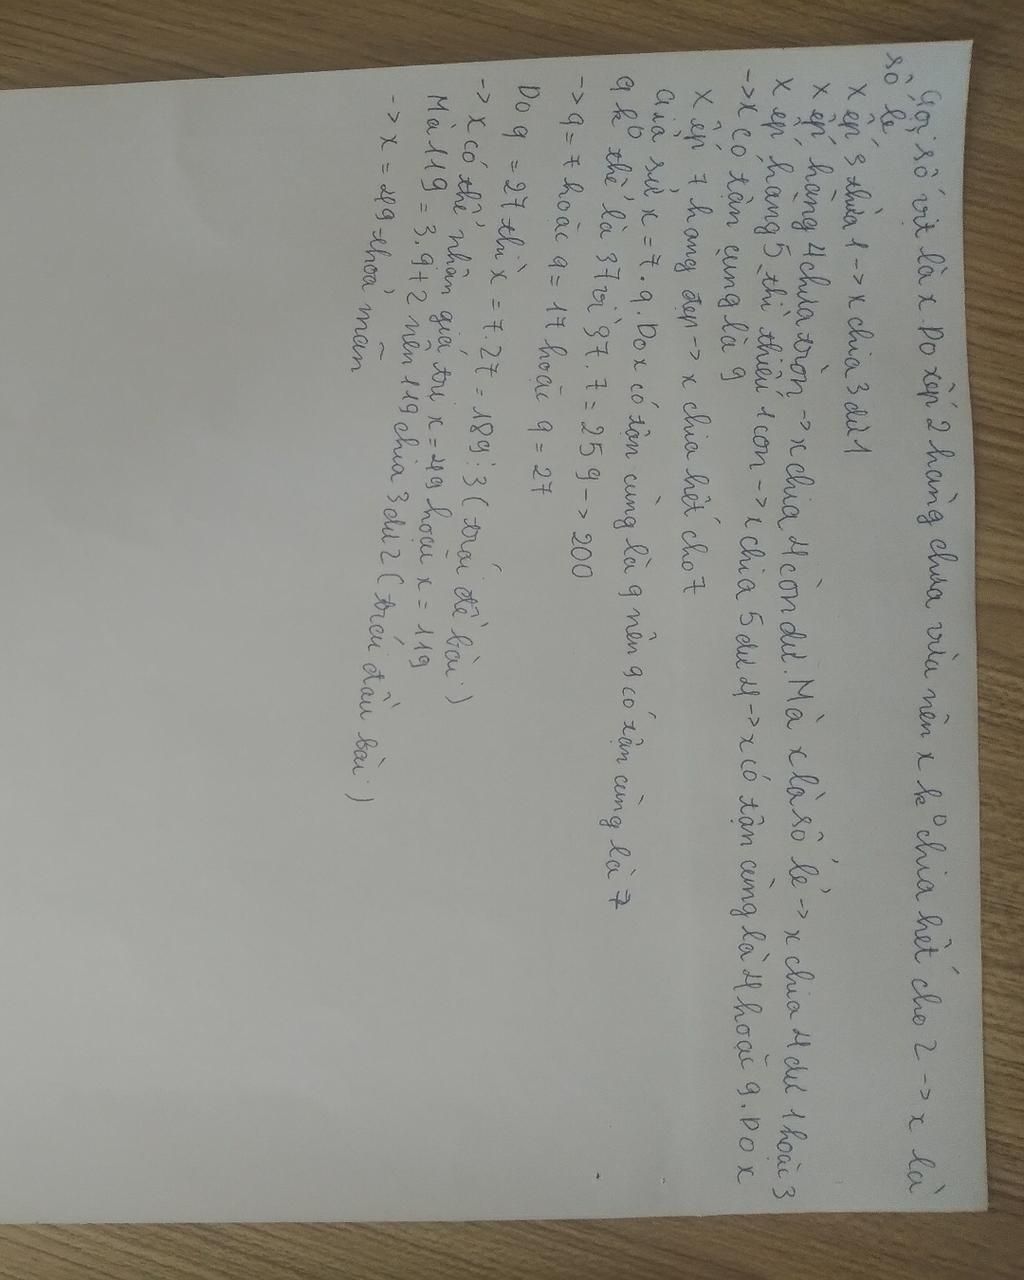 Gọi số vịt là x. Do xếp 2 hàng chưa vừa nên x k⁰ chia hết cho 2 -> x là
số lẻ
Xếp 3 thừa 1 -> x chia 3 dư 1
Xếp hàng 4 chưa tròn -> x chia 4 còn dư. Mà x là số lẻ -> x chia 4 dư 1 hoặc 3
Xếp hàng 5 thì thiếu 1 con -> x chia 5 dư 4 -> x có tận cùng là 4 hoặc 9. Do x
-> x có tận cùng là 9
Xếp 7 hàng đẹp -> x chia hết cho 7
Giả sử x = 7.q. Do x có tận cùng là 9 nên q có tận cùng là 7
q k⁰ thể là 37 vì 37.7 = 259 -> 200
-> q = 7 hoặc q = 17 hoặc q = 27
Do q = 27 thì x = 7.27 = 189 ⋮ 3 (trái đề bài.)
-> x có thể nhận giá trị x = 49 hoặc x = 119
Mà 119 = 3.9+2 nên 119 chia 3 dư 2 (trái đầu bài.)
-> x = 49 thoả mãn